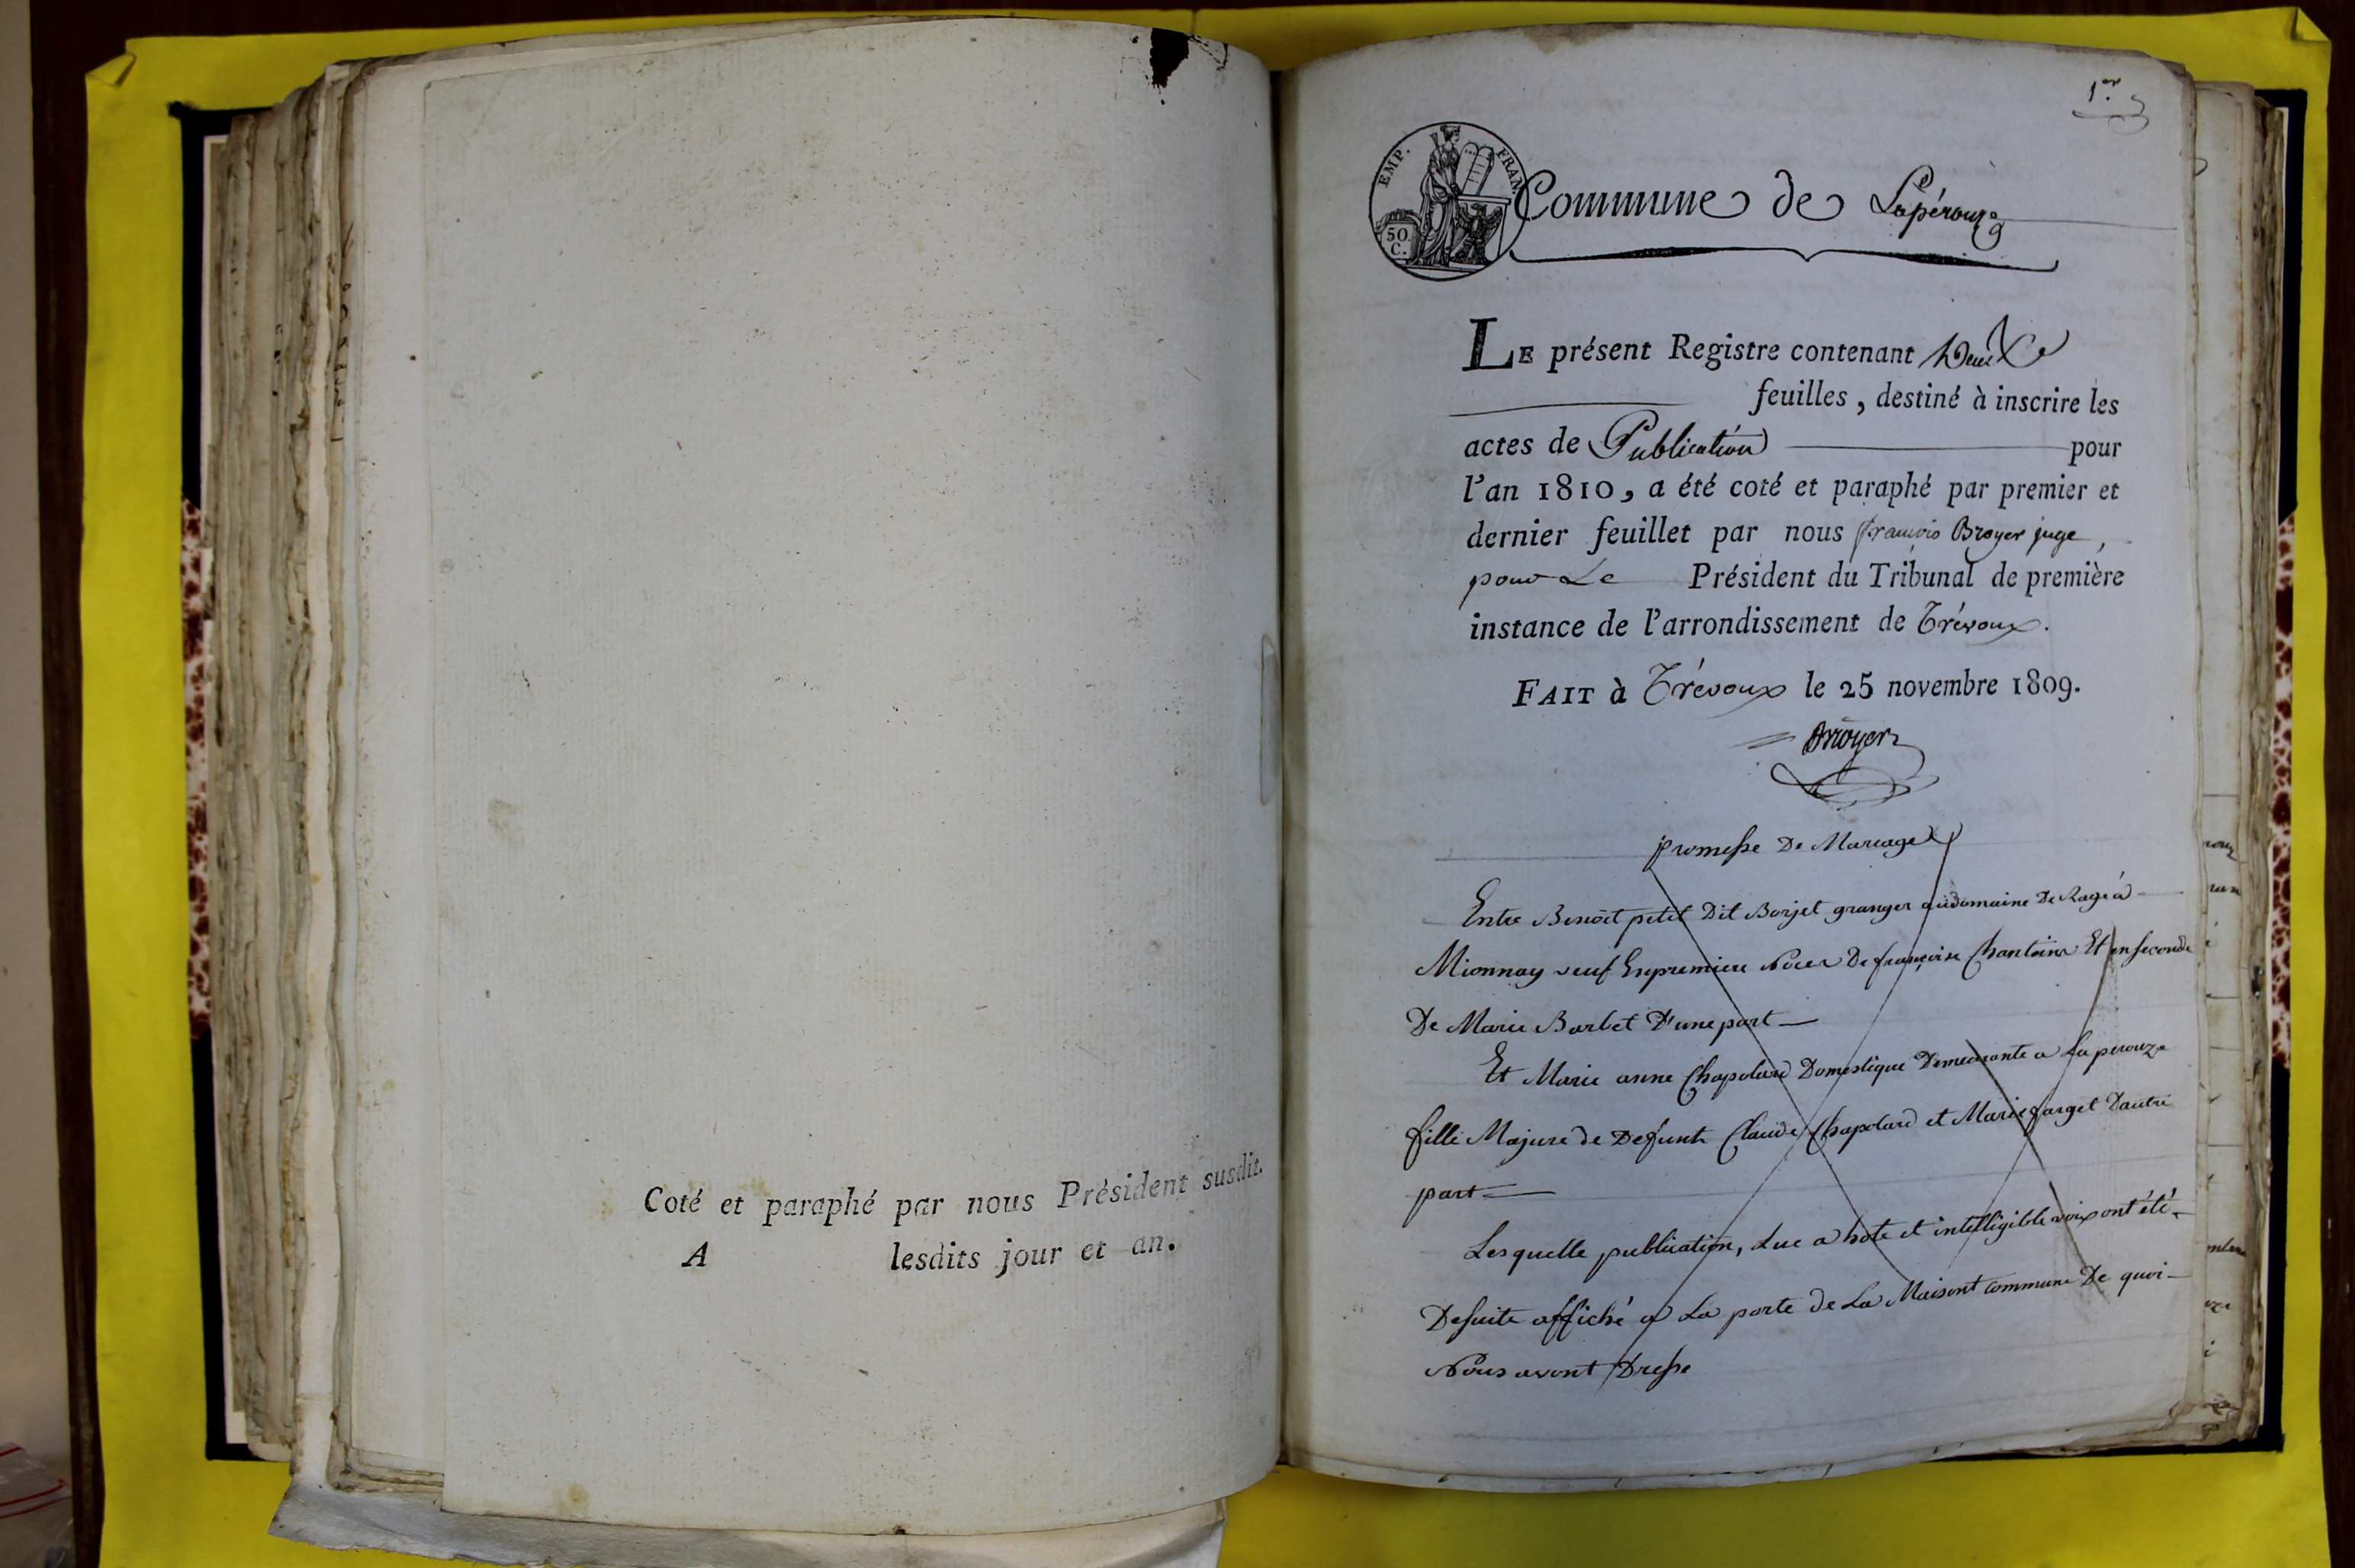 Coté et paraphé par nous Président susdit.
A lesdits jour et an.
1.er
EMP. FRAN.
50 C.
Commune de Lapérouze
LE présent Registre contenant Deux
feuilles, destiné à inscrire les
actes de Publication pour
l'an 1810, a été coté et paraphé par premier et
dernier feuillet par nous françois Broyer juge,
pour Le Président du Tribunal de première
instance de l'arrondissement de Trévoux.
FAIT à Trévoux le 25 novembre 1809.
Broyer
promesse De Mariage
Entre Benoit petit Dit Borjet granger au domaine De Ragé a
Mionnay veuf En premiere Noces De françoise Chantoins Et en seconde
De Marie Barbet D'une part
Et Marie anne Chapolard Domestique Demeurante a Laperouze
fille Majure de Defunt Claude Chapolard et Marie farget Dautre
part
Les quelle publication, Lue a hote et intelligible voix ont été
De suite affiché a La porte de La Maisont commune De quoi
Nous avont Dresse